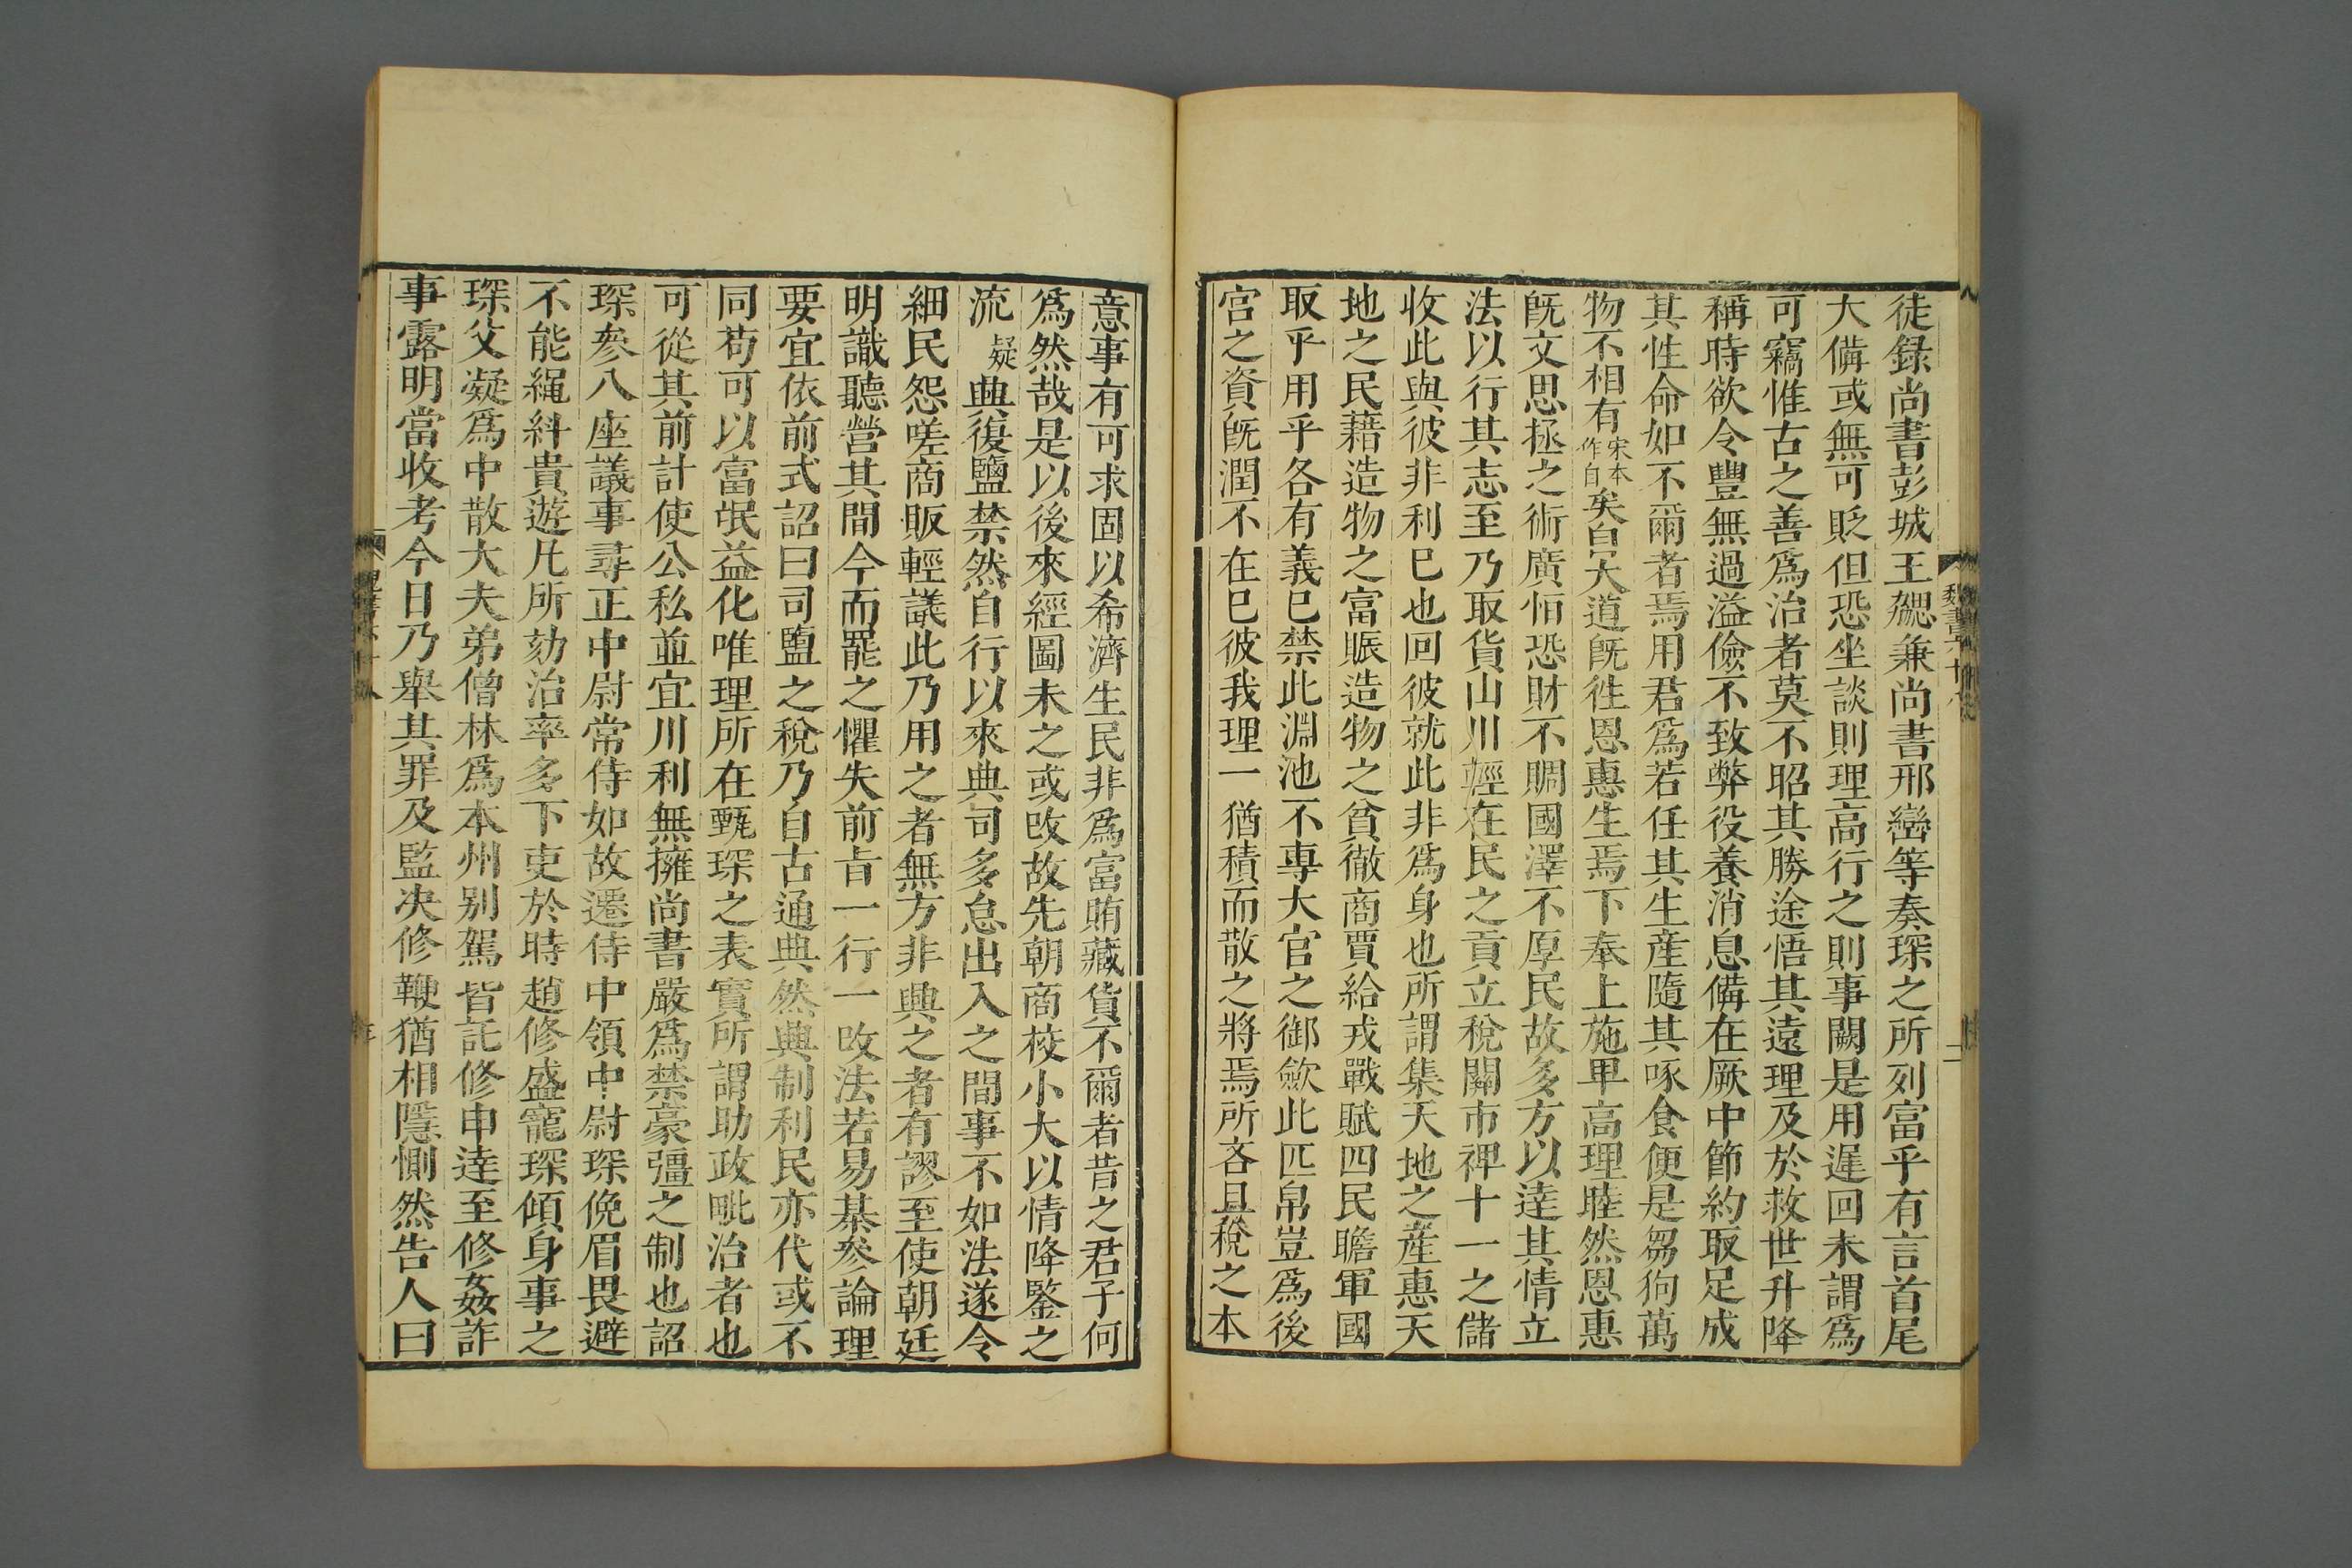 徒録尚書彭城王勰兼尚書邢巒等奏琛之所列富乎有言首尾
大備或無可貶但恐坐談則理高行之則事闕是用遲回未謂爲
可竊惟古之善爲治者莫不昭其勝途悟其遠理及於救世升降
稱時欲令豐無過溢儉不致弊役養消息備在厥中節約取足成
其性命如不爾者焉用君爲若任其生產隨其啄食便是芻狗萬
物不相有宋本作自矣自大道旣往恩惠生焉下奉上施卑高理睦然恩惠
旣交思拯之術廣怕恐財不賙國澤不厚民故多方以達其情立
法以行其志至乃取貨山川輕在民之貢立稅關市裨十一之儲
收此與彼非利巳也回彼就此非爲身也所謂集天地之產惠天
地之民藉造物之富賑造物之貧徹商賈給戎戰賦四民贍軍國
取乎用乎各有義巳禁此淵池不專大官之御歛此匹帛豈爲後
宮之資旣潤不在巳彼我理一猶積而散之將焉所吝且稅之本
魏書六十八
二
意事有可求固以希濟生民非爲富賄藏貨不爾者昔之君子何
爲然哉是以後來經圖未之或攺故先朝商校小大以情降鑒之
流疑興復鹽禁然自行以來典司多怠出入之間事不如法遂令
細民怨嗟商販輕議此乃用之者無方非興之者有謬至使朝廷
明識聽營其間今而罷之懼失前旨一行一攺法若易棊參論理
要宜依前式詔曰司鹽之稅乃自古通典然興制利民亦代或不
同苟可以富氓益化唯理所在甄琛之表實所謂助政毗治者也
可從其前計使公私並宜川利無擁尚書嚴爲禁豪彊之制也詔
琛參八座議事尋正中尉常侍如故遷侍中領中尉琛俛眉畏避
不能繩糾貴遊凡所劾治率多下吏於時趙修盛寵琛傾身事之
琛父凝爲中散大夫弟僧林爲本州别駕皆託修申達至修姦詐
事露明當收考今日乃舉其罪及監决修鞭猶相隱惻然告人曰